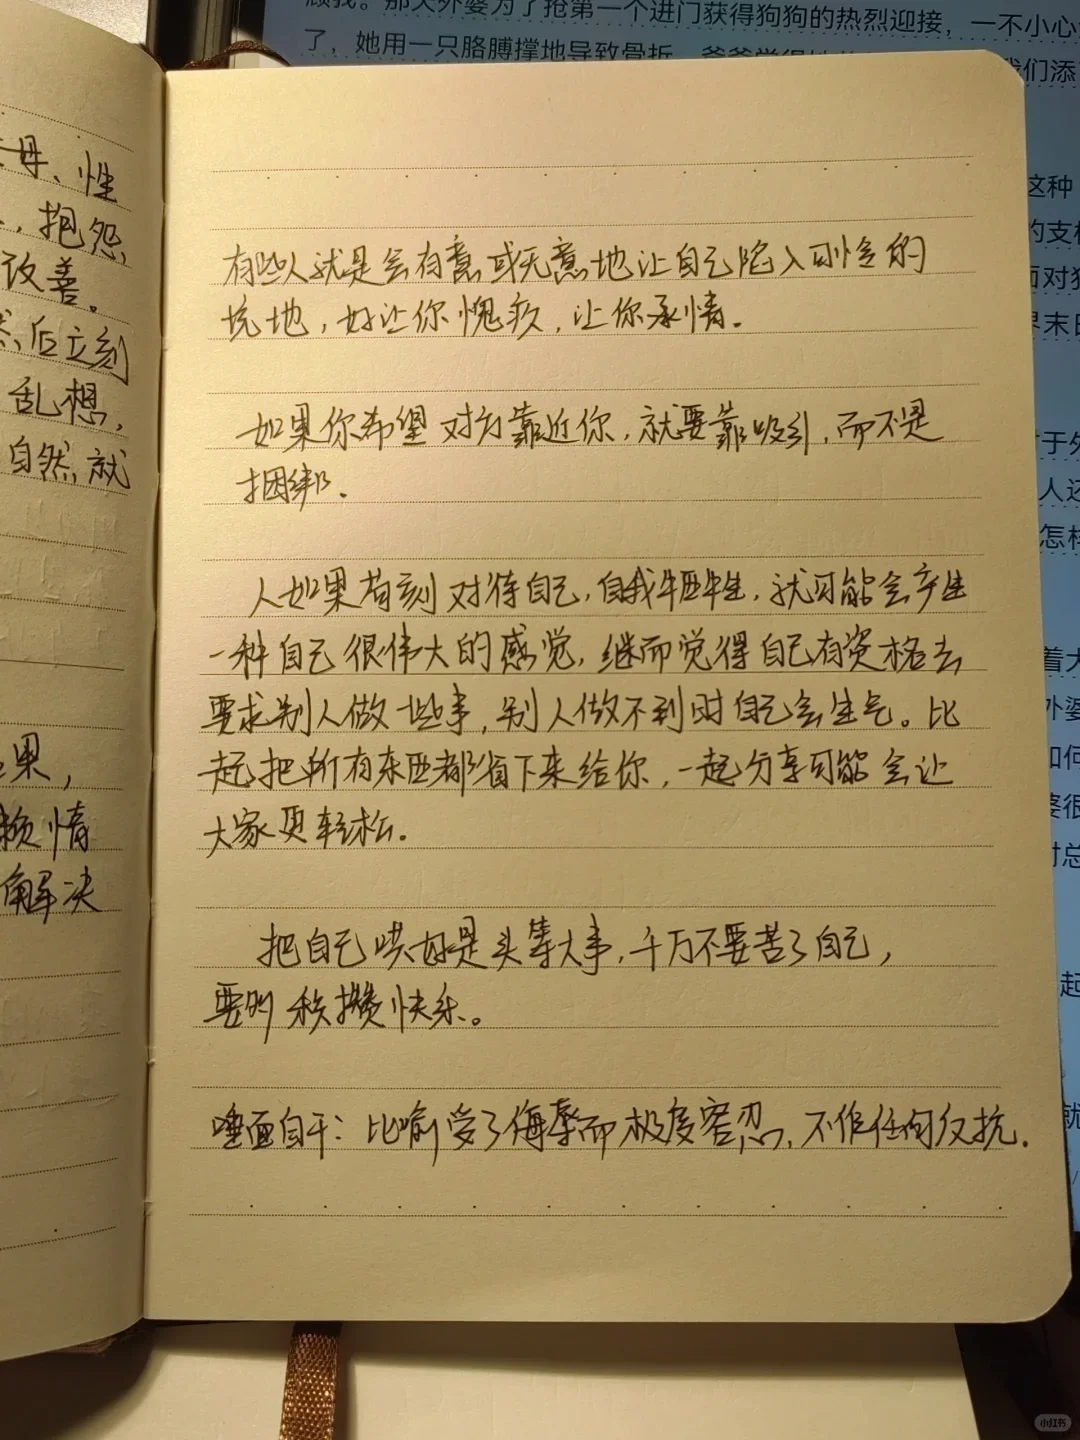 顾我。那天外婆为了抢第一个进门获得狗狗的热烈迎接，一不小心
了，她用一只胳膊撑地导致骨折
我们添
这种
的支
面对
界末日
于外
人还
怎样
着大
外婆
如何
婆很
时总
起
就
母、性
，抱怨、
改善。
后立刻
乱想，
自然、就
果，
情
解决
有些人就是会有意或无意地让自己陷入可怜的
境地，好让你愧疚，让你承情。
如果你希望对方靠近你，就要靠吸引，而不是
捆绑。
人如果苛刻对待自己，自我牺牲，就可能会产生
一种自己很伟大的感觉，继而觉得自己有资格去
要求别人做些事，别人做不到时自己会生气。比
起把所有东西都省下来给你，一起分享可能会让
大家更轻松。
把自己哄好是头等大事，千万不要苦了自己，
要积攒快乐。
唾面自干：比喻受了侮辱而极度容忍，不作任何反抗。
小红书